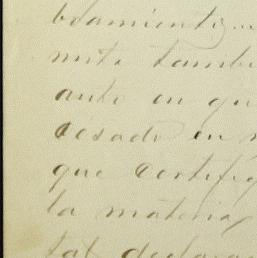 bramiento
mite tambi
auto en qu
cesado en
que certifi
la materia
tal declara